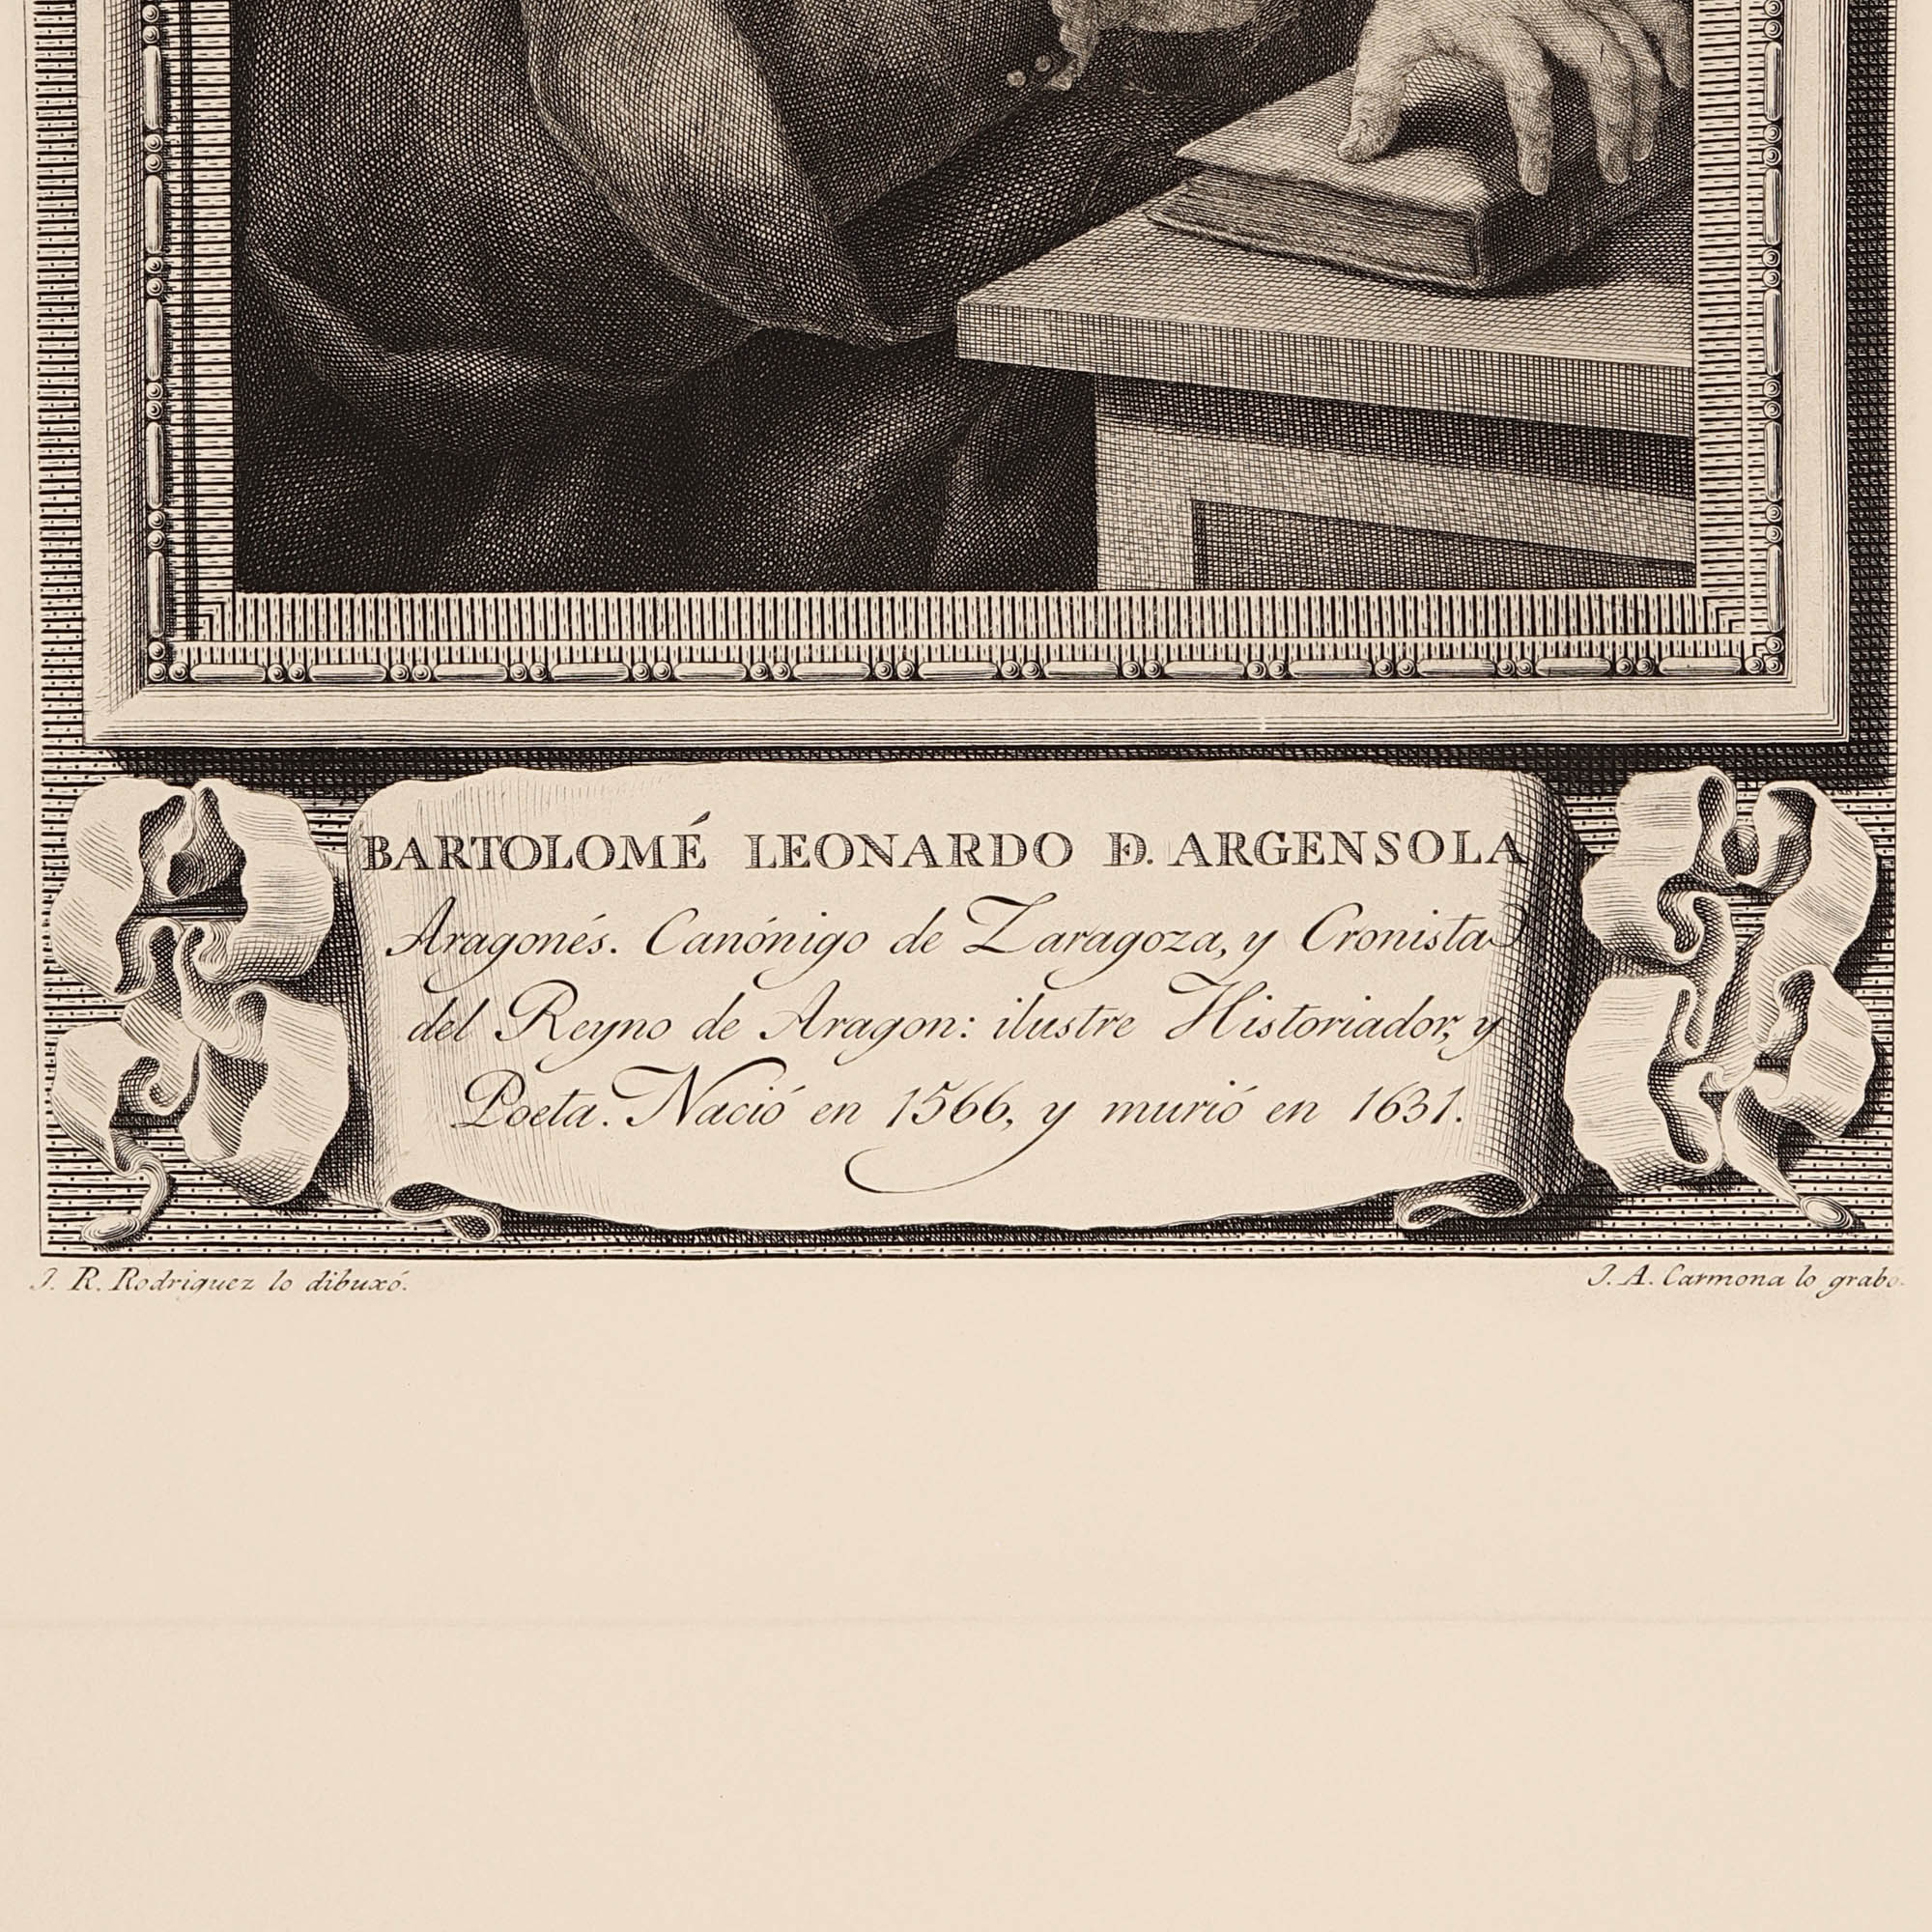 BARTOLOMÉ LEONARDO D. ARGENSOLA
Aragonés. Canónigo de Zaragoza, y Cronista
del Reyno de Aragon: ilustre Historiador, y
Poeta. Nació en 1566, y murió en 1631.
J. R. Rodriguez lo dibuxó.
J. A. Carmona lo grabó.